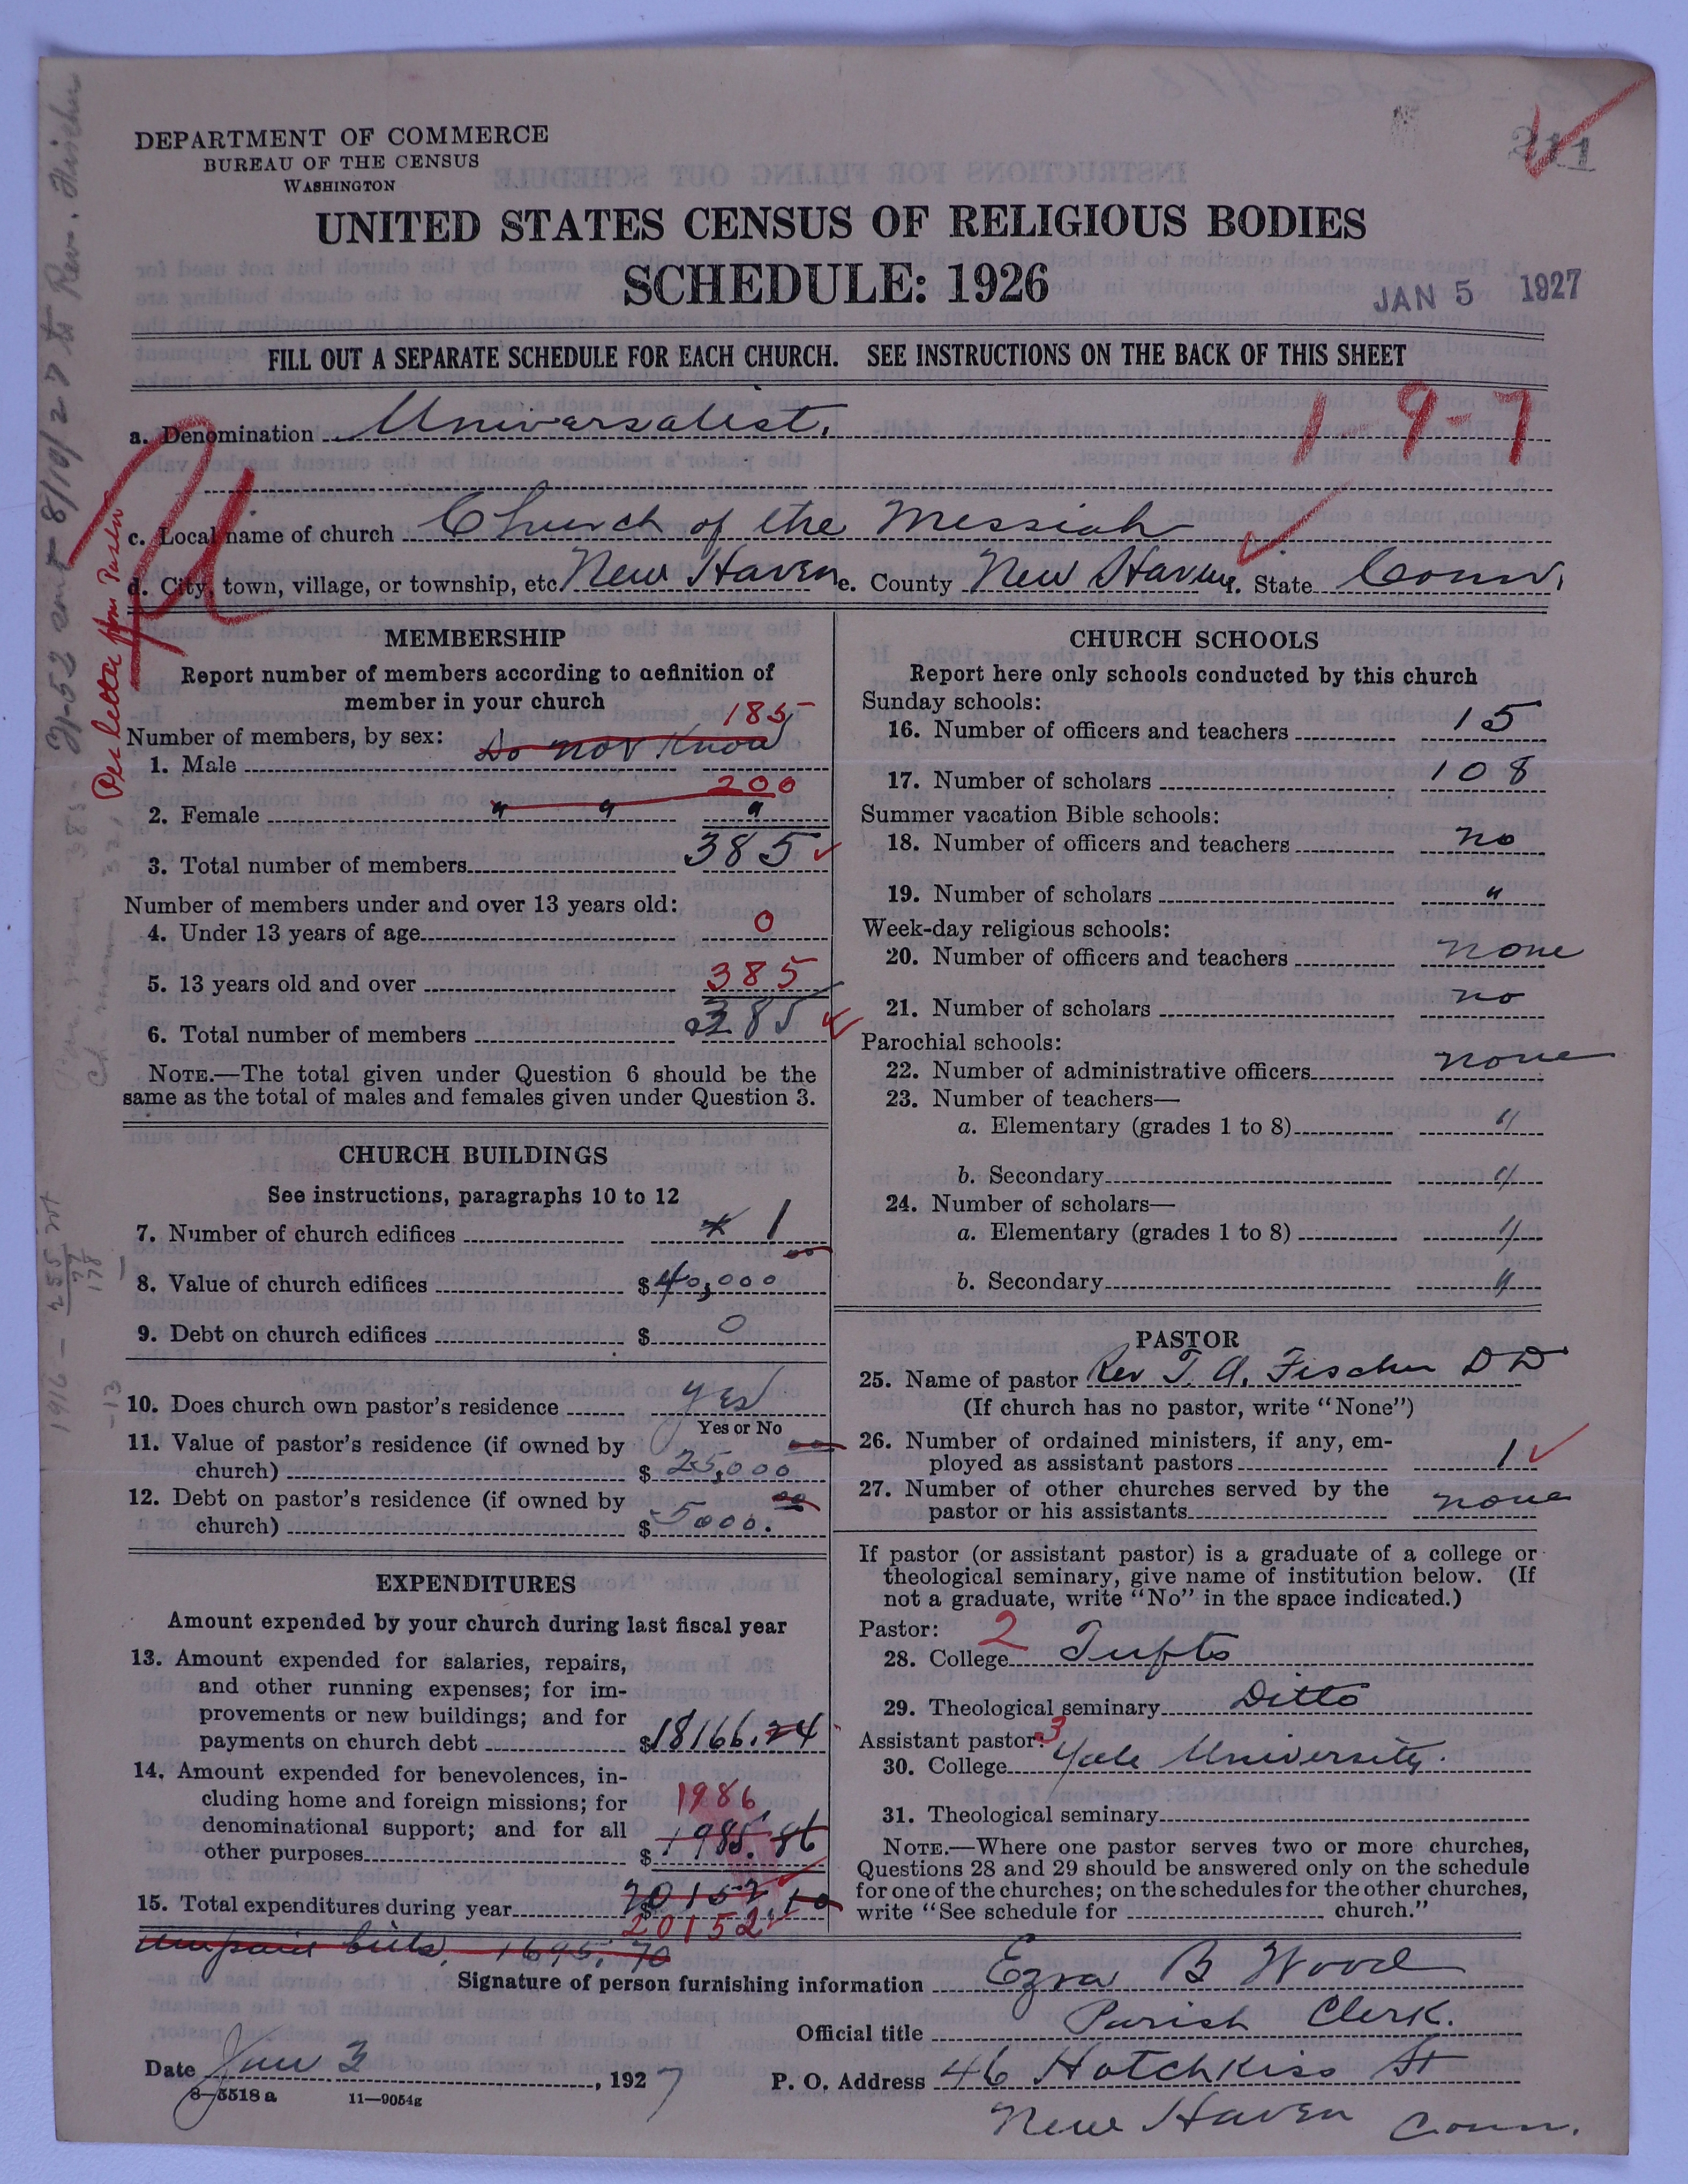 DEPARTMENT OF COMMERCE
BUREAU OF THE CENSUS
WASHINGTON
211
UNITED STATES CENSUS OF RELIGIOUS BODIES
SCHEDULE: 1926
JAN 5 1927
FILL OUT A SEPARATE SCHEDULE FOR EACH CHURCH. SEE INSTRUCTIONS ON THE BACK OF THIS SHEET
1-9-7
a. Denomination Universalist.
c. Local name of church Church of the Messiah
d. City, town, village, or township, etc. New Haven e. County New Haven f. State Conn.
Per letter from Pastor
MEMBERSHIP
Report number of members according to definition of
member in your church
185
Number of members, by sex: Do not Know
1. Male
200
2. Female " " "
3. Total number of members 385
Number of members under and over 13 years old:
4. Under 13 years of age 0
5. 13 years old and over 385
6. Total number of members 385
NOTE.—The total given under Question 6 should be the
same as the total of males and females given under Question 3.
CHURCH BUILDINGS
See instructions, paragraphs 10 to 12
7. Number of church edifices * 1
8. Value of church edifices $40,000 00
9. Debt on church edifices $ 0
10. Does church own pastor's residence Yes
Yes or No
11. Value of pastor's residence (if owned by
church) $ 25,000 00
12. Debt on pastor's residence (if owned by
church) $ 5000. 00
EXPENDITURES
Amount expended by your church during last fiscal year
13. Amount expended for salaries, repairs,
and other running expenses; for im-
provements or new buildings; and for
payments on church debt $18166.24
14. Amount expended for benevolences, in-
cluding home and foreign missions; for 1986
denominational support; and for all
other purposes $ 1985.86
15. Total expenditures during year $ 20152.10
20152
Unpaid bills, 1695.70
CHURCH SCHOOLS
Report here only schools conducted by this church
Sunday schools:
16. Number of officers and teachers 15
17. Number of scholars 108
Summer vacation Bible schools:
18. Number of officers and teachers no
19. Number of scholars "
Week-day religious schools:
20. Number of officers and teachers none
21. Number of scholars no
Parochial schools:
22. Number of administrative officers none
23. Number of teachers—
a. Elementary (grades 1 to 8) "
b. Secondary "
24. Number of scholars—
a. Elementary (grades 1 to 8) "
b. Secondary "
PASTOR
25. Name of pastor Rev T. A. Fischer D D
(If church has no pastor, write "None")
26. Number of ordained ministers, if any, em-
ployed as assistant pastors 1
27. Number of other churches served by the
pastor or his assistants none
If pastor (or assistant pastor) is a graduate of a college or
theological seminary, give name of institution below. (If
not a graduate, write "No" in the space indicated.)
Pastor: 2
28. College Tufts
29. Theological seminary Ditto
Assistant pastor: 3
30. College Yale University.
31. Theological seminary
NOTE.—Where one pastor serves two or more churches,
Questions 28 and 29 should be answered only on the schedule
for one of the churches; on the schedules for the other churches,
write "See schedule for church."
Signature of person furnishing information Ezra B Wood
Official title Parish Clerk.
Date Jan 3, 1927
P. O. Address 46 Hotchkiss St
New Haven Conn.
8—5518a 11—9054g